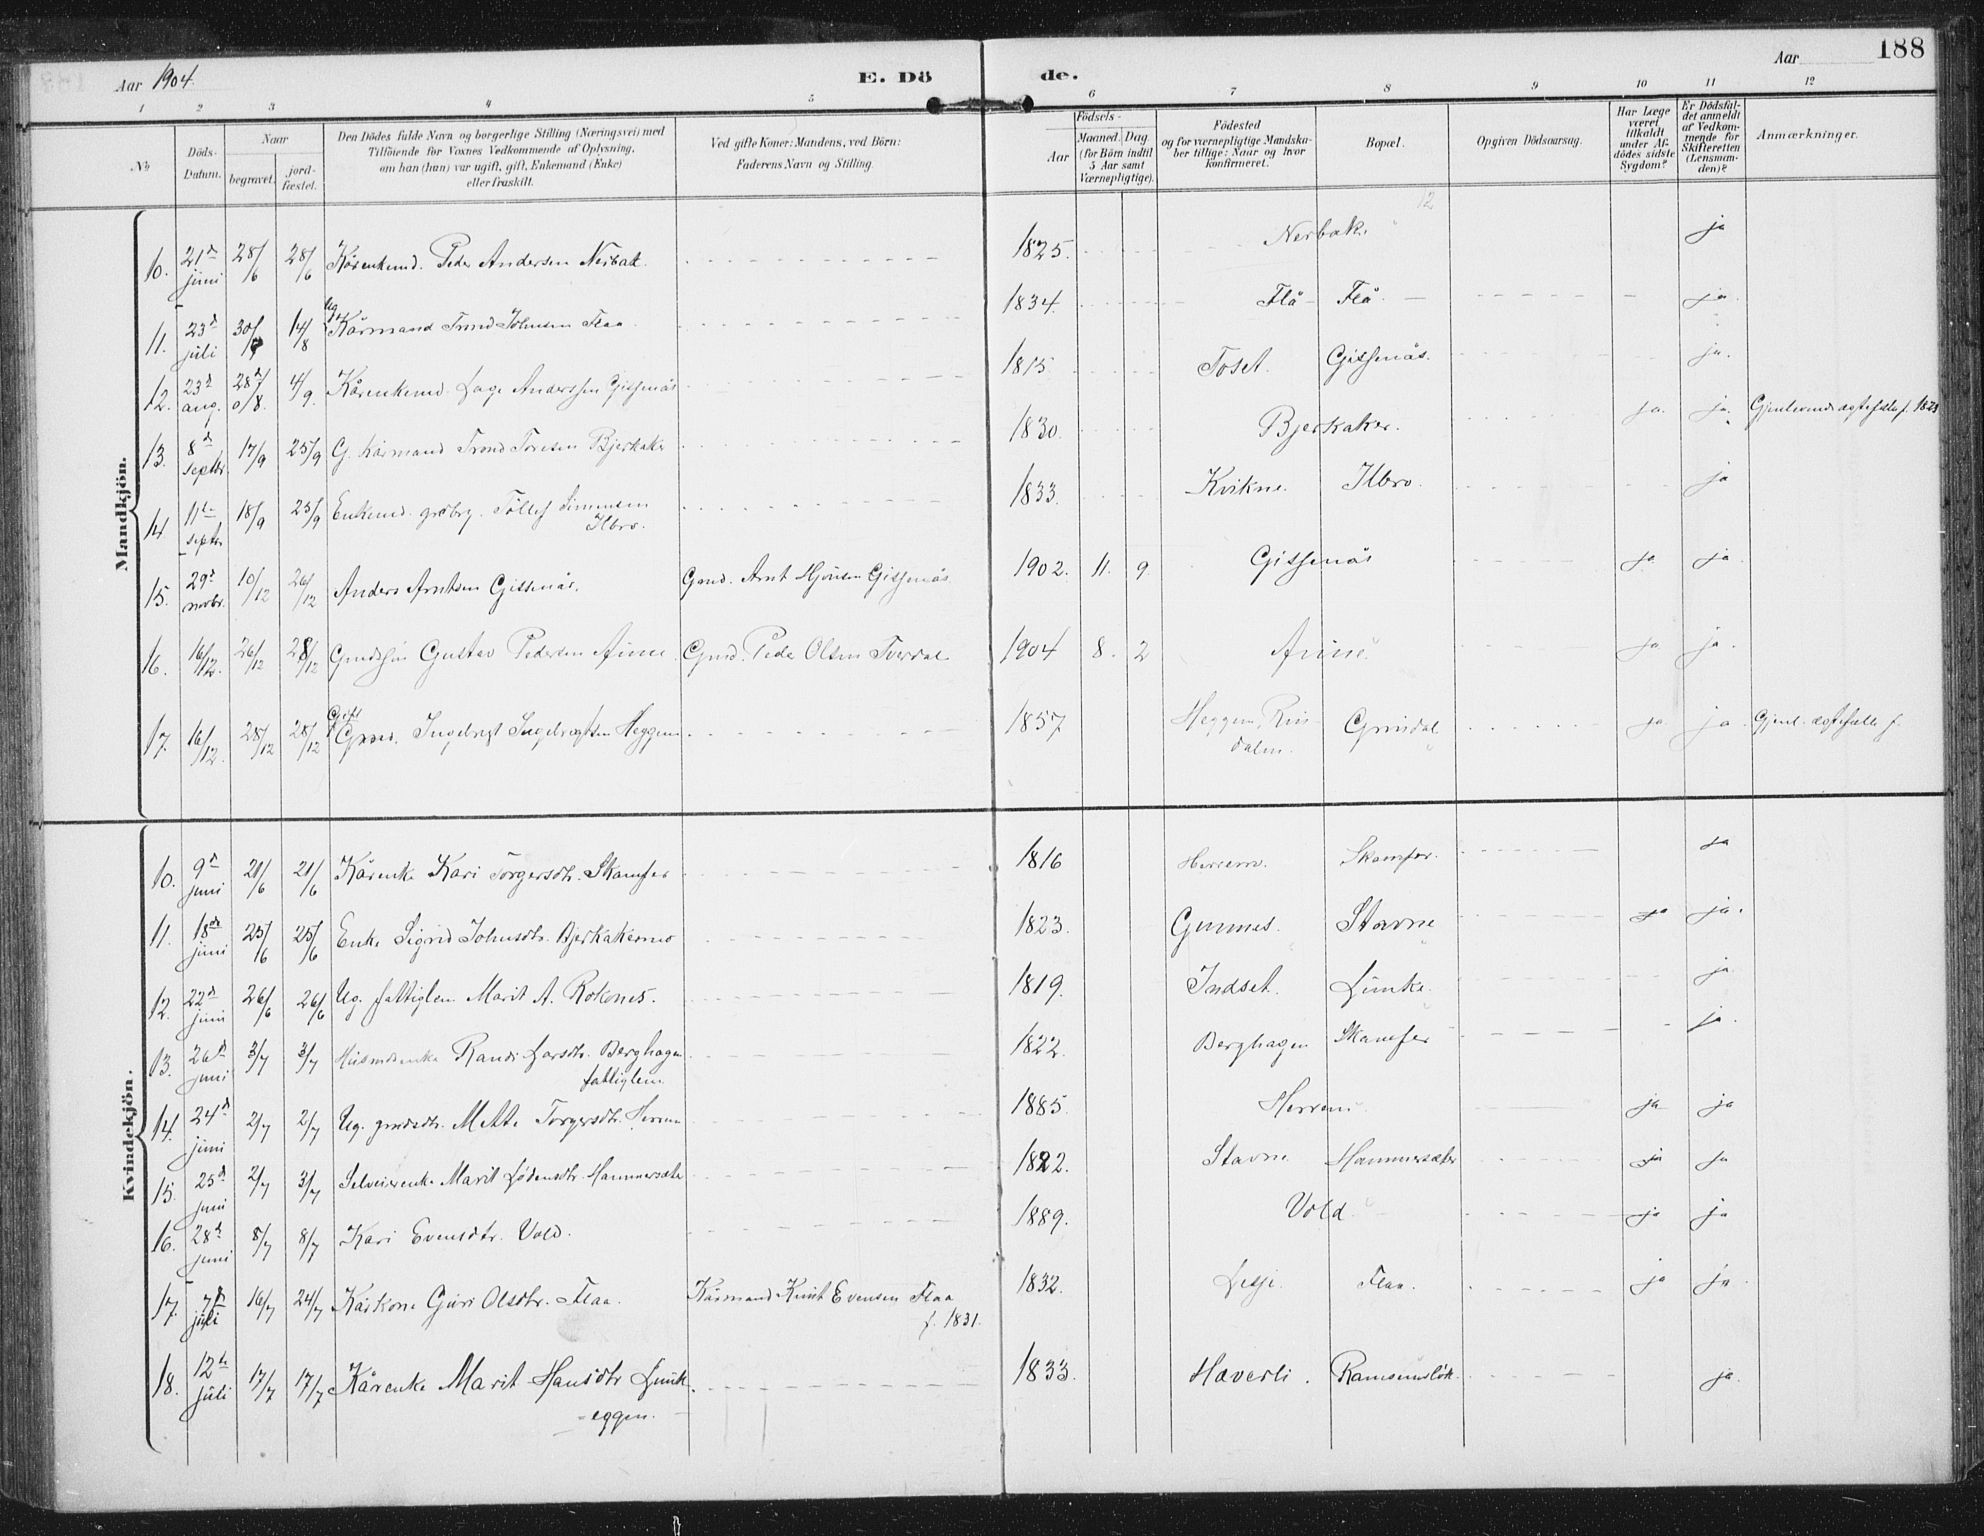 Aar 1904.
E. Dö
de.
Aar
188
1 2 3 4 5 6 7 8 9 10 11 12
No
Döds-Datum.
Naar
begravet.
jord-fæstet.
Den Dödes fulde Navn og borgerlige Stilling (Næringsvei) med
Tilföiende for Voxnes Vedkommende af Oplysning,
om han (hun) var ugift, gift, Enkemand (Enke)
eller fraskilt.
Ved gifte Koner: Mandens, ved Börn:
Faderens Navn og Stilling.
Födsels-
Aar
Maaned. Dag
(for Börn indtil
5 Aar samt
Værnepligtige).
Födested
og for værnepligtige Mandska-
ber tillige: Naar og hvor
konfirmeret.
Bopæl.
Opgiven Dödsaarsag.
Har Læge
været
tilkaldt
under Af-
dødes sidste
Sygdom?
Er Dödsfal-
det anmeldt
af Vedkom-
mende for
Skifteretten
(Lensman-
den)?
Anmærkninger.
12
Mandkjön.
10. 21de juni 28/6 28/6 Kårenkemd. Peder Andersen Nerbak. 1825. Nerbak. ja
11. 23d juli 30/7 14/8 Ug. Kårmand Trond Johnsen Flaa 1834. Flå Flå ja.
12. 23d aug. 28/8 4/9 Kårenkemd. Lage Anderssen Gissenås 1815 Toset. Gissenås. ja.
13. 8d septbr. 17/9 25/9 G. Kårmand Trond Toresen Bjerkaker 1830. Bjerkaker. ja. ja. Gjenlevende ægtefælle f. 1823
14. 11te septbr 18/9 25/9 Enkemd. grdbrg. Tollef Simensen
Ilbro. 1833. Kvikne. Ilbro. ja
15. 29d novbr. 10/12 26/12 Anders Arntsen Gissenås. Gmd. Arnt Gissenås 1902. 11. 9 Gissenås ja ja
16. 16/12. 26/12 28/12 Gmdssøn Gustav Pedersen Aune. Gmd. Peder Olsen Tverdal 1904 8. 2 Aune. ja ja.
17. 16/12. 28/12 28/12 Gift Gmd. Ingebrigt Ingebrigtsen Heggem 1857 Heggem, Ris-
dalen. Grindal ja ja. Gjenl. ægtefælle f.
Kvindekjön.
10. 9d juni 21/6 21/6 Kårenke Kari Torgersdtr. Skamfer 1816 Herremo. Skamfer. ja
11. 18de juni 25/6 25/6 Enke Sigrid Johnsdtr. Bjerkakermo 1823. Gunnes. Stavne ja ja.
12. 22d juni 26/6 26/6 Ug. fattiglem Marit A. Roknes. 1819. Indset. Lunke. ja
13. 26d juni 3/7 3/7 Husmdsenke Randi Larsdtr. Berghagen
fattiglem 1822. Berghagen Skamfer ja.
14. 24d juni 2/7 2/7 Ug. grmdsdtr. Mette Torgersdtr. Herrem 1885. Herrem ja ja
15. 25d juni 2/7 3/7 Selveierenke Marit Lodensdtr. Hammersæter 1822. Stavne Hammersæter ja ja
16. 28d juni 8/7 8/7 Kari Evensdtr. Vold. 1889. Vold. ja ja
17. 7d juli 16/7 24/7 Kårkone Guri Olsdtr. Flaa. Kårmand Knut Evensen Flaa
f. 1831. 1832. Lesje Flaa. ja ja
18. 12te juli 17/7 17/7 Kårenke Marit Hansdtr Lunk-
eggen. 1833. Haverli. Ramsemslök. ja.